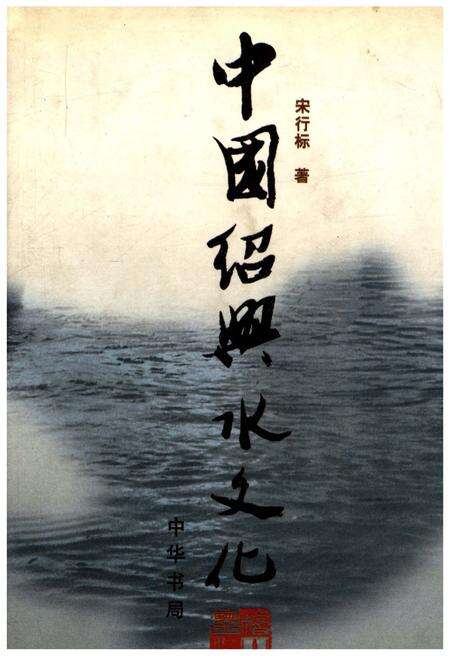 中國紹興水文化
宋行标 著
中华书局